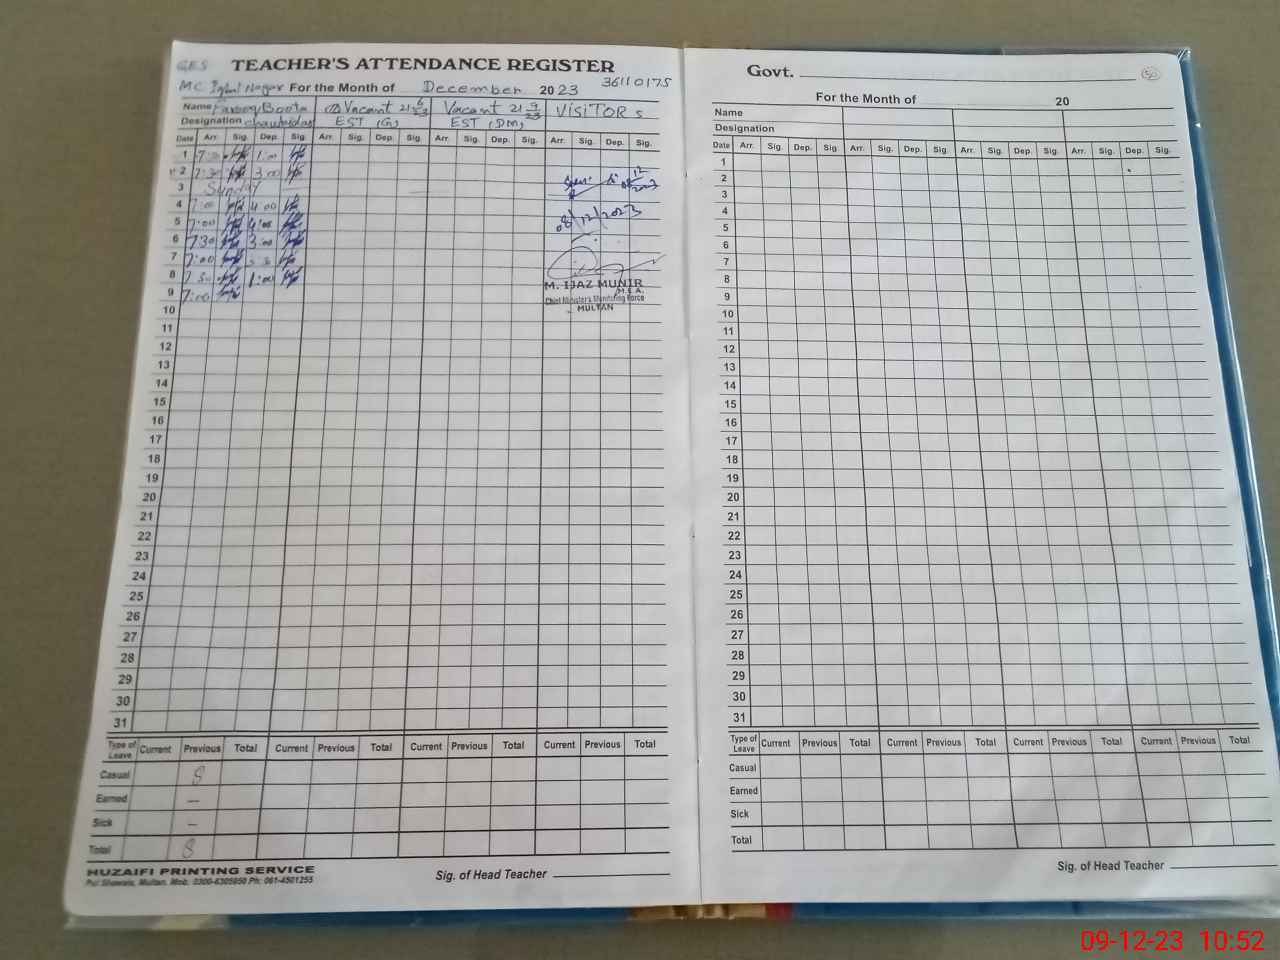 GES TEACHER'S ATTENDANCE REGISTER
MC Iqbal Nagar For the Month of December 2023 36110175
Name Farooq Boota Vacant 21 6/23 Vacant 21 9/23 VISITORS
Designation chowkidar EST (G) EST (DM)
Date Arr. Sig. Dep. Sig. Arr. Sig. Dep. Sig. Arr. Sig. Dep. Sig. Arr. Sig. Dep. Sig.
1 7:30 1:00
2 7:30 3:00
3 Sunday
4 7:00 4:00
5 7:00 4:00
6 7:30 3:00
7 7:00
8 7:30 1:00
9 7:00
08/12/2023
M. IJAZ MUNIR
M.E.A.
Chief Minister's Monitoring Force
MULTAN
10
11
12
13
14
15
16
17
18
19
20
21
22
23
24
25
26
27
28
29
30
31
Type of Leave Current Previous Total Current Previous Total Current Previous Total Current Previous Total
Casual 8
Earned –
Sick –
Total 8
HUZAIFI PRINTING SERVICE
Pul Showala, Multan. Mob. 0300-6305950 Ph: 061-4501255
Sig. of Head Teacher
Govt. 50
For the Month of 20
Name
Designation
Date Arr. Sig. Dep. Sig. Arr. Sig. Dep. Sig. Arr. Sig. Dep. Sig. Arr. Sig. Dep. Sig.
1
2
3
4
5
6
7
8
9
10
11
12
13
14
15
16
17
18
19
20
21
22
23
24
25
26
27
28
29
30
31
Type of Leave Current Previous Total Current Previous Total Current Previous Total Current Previous Total
Casual
Earned
Sick
Total
Sig. of Head Teacher
09-12-23 10:52